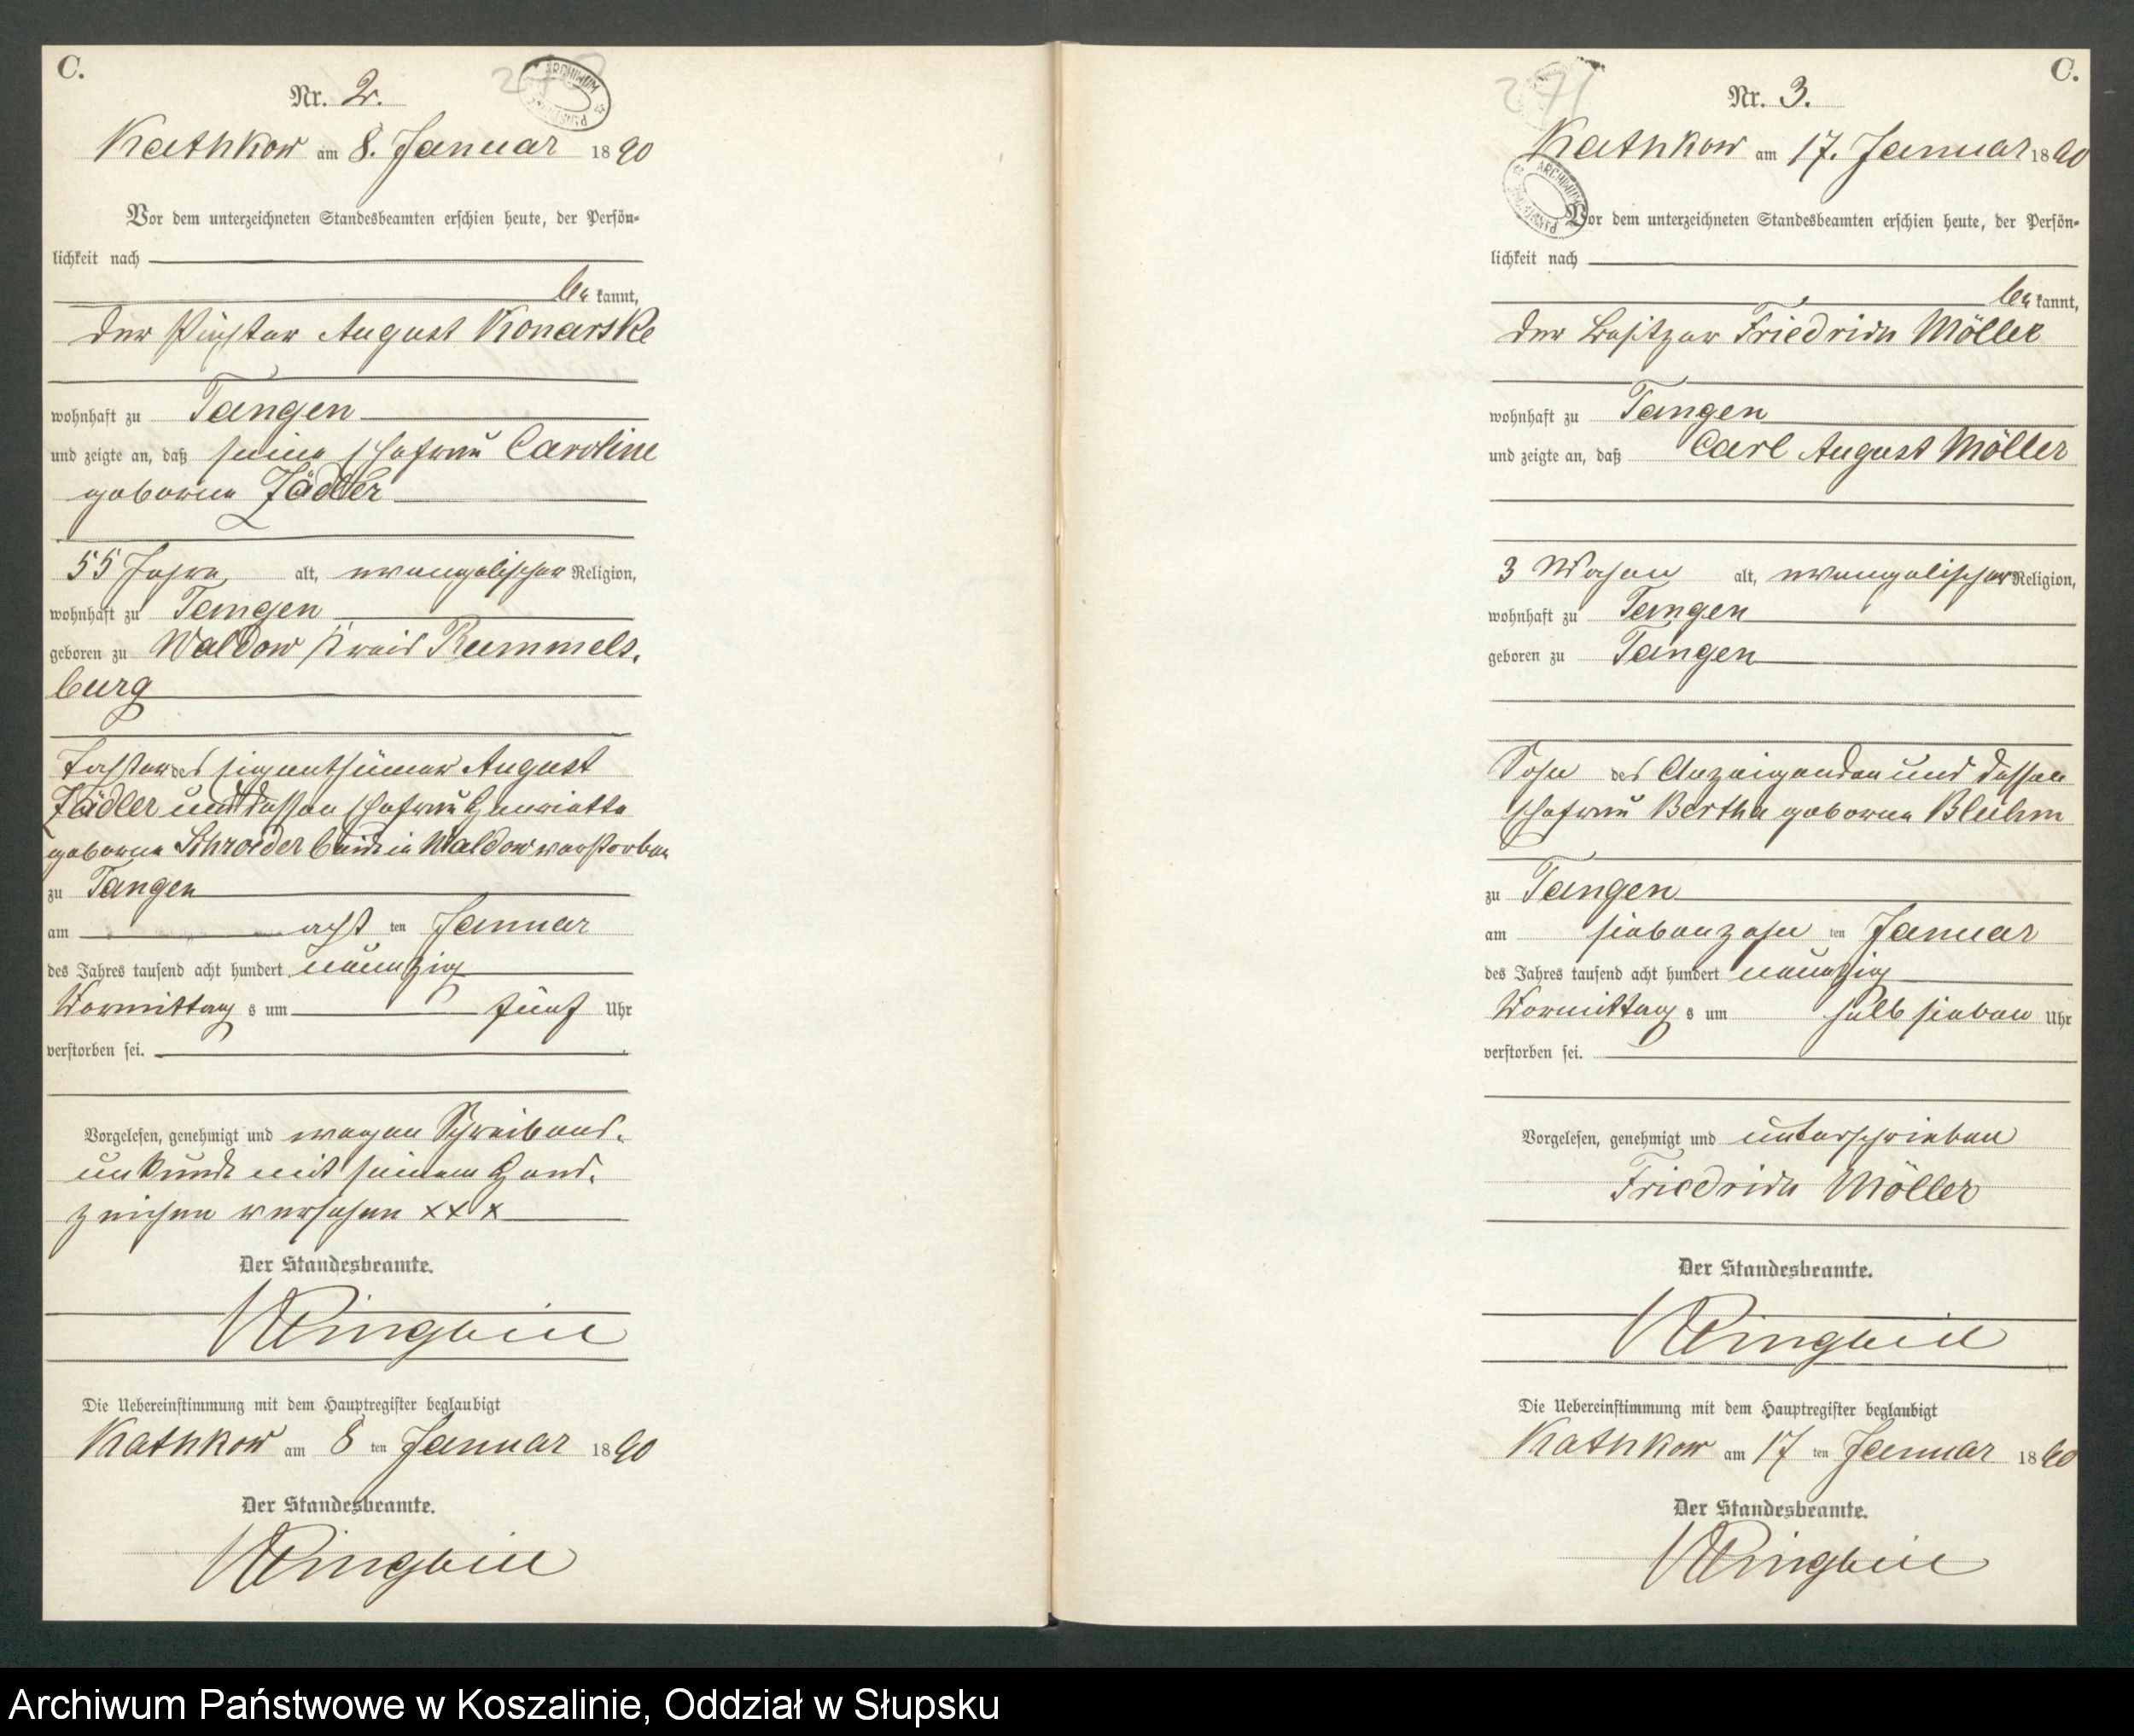 C.
Nr. 2.
ARCHIWUM
Kathkow am 8. Januar 1890
Vor dem unterzeichneten Standesbeamten erschien heute, der Persön-
lichkeit nach
be kannt,
der August Konarske
wohnhaft zu Tangen
und zeigte an, daß seine Ehefrau Caroline
geborne Zädler
55 Jahre alt, evangelischer Religion,
wohnhaft zu Tangen
geboren zu Waldow Kreis Rummels-
burg
Tochter des Eigenthümer August
Zädler und dessen Ehefrau Henriette
geborne Schroeder beide in Waldow verstorben
zu Tangen
am acht ten Januar
des Jahres tausend acht hundert neunzig
Vormittag s um fünf Uhr
verstorben sei.
Vorgelesen, genehmigt und wegen Schreibens-
unkunde mit seinem Hand-
zeichen versehen xxx
Der Standesbeamte.
Die Uebereinstimmung mit dem Hauptregister beglaubigt
Kathkow am 8 ten Januar 1890
Der Standesbeamte.
C.
271
Nr. 3.
Kathkow am 17. Januar 1890
ARCHIWUM
Vor dem unterzeichneten Standesbeamten erschien heute, der Persön-
lichkeit nach
be kannt,
der Besitzer Friedrich Möller
wohnhaft zu Tangen
und zeigte an, daß Carl August Möller
3 Wochen alt, evangelischer Religion,
wohnhaft zu Tangen
geboren zu Tangen
Sohn des Anzeigenden und dessen
Ehefrau Bertha geborne Bluhm
zu Tangen
am siebenzehn ten Januar
des Jahres tausend acht hundert neunzig
Vormittag s um halb sieben Uhr
verstorben sei.
Vorgelesen, genehmigt und unterschrieben
Friedrich Möller
Der Standesbeamte.
Die Uebereinstimmung mit dem Hauptregister beglaubigt
Kathkow am 17 ten Januar 1890
Der Standesbeamte.
Archiwum Państwowe w Koszalinie, Oddział w Słupsku